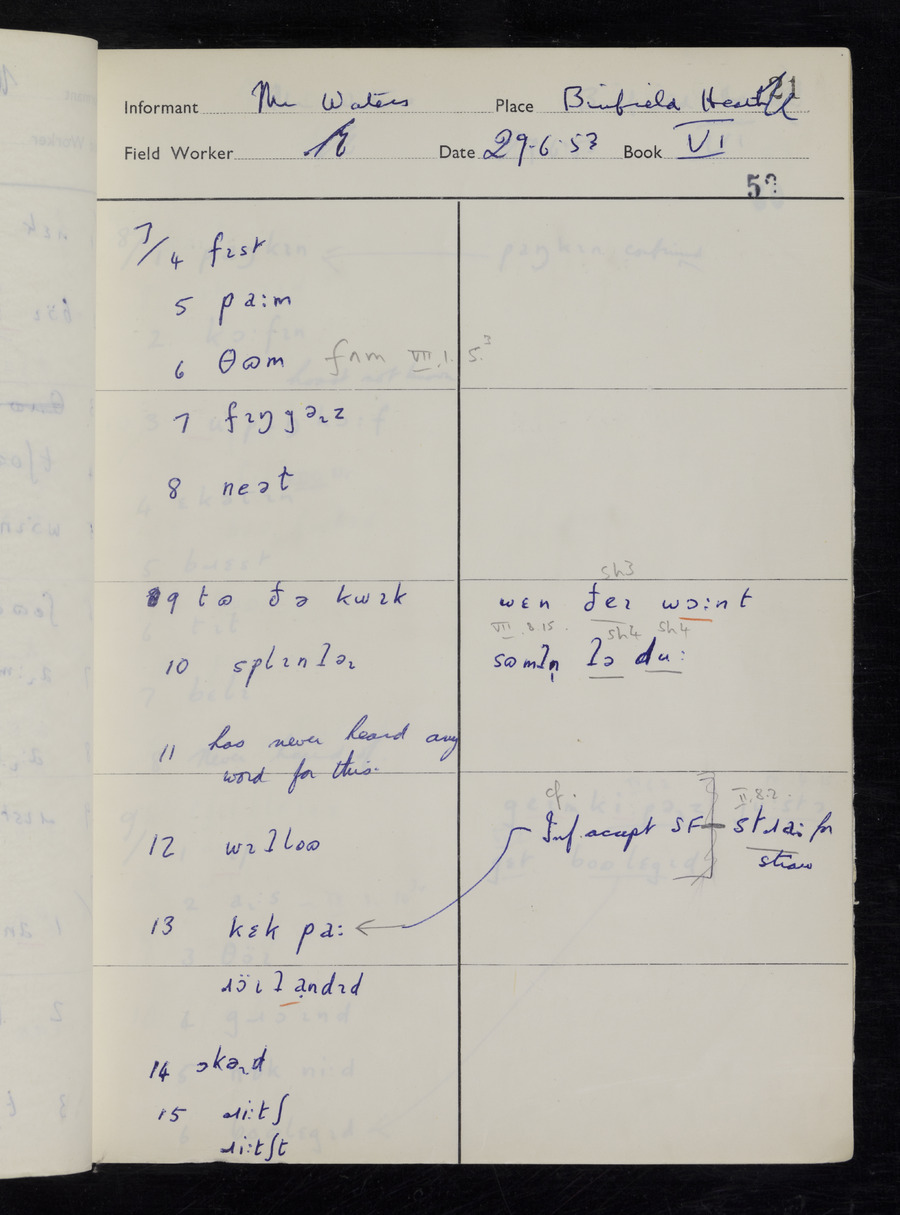 21
Informant Mr Waters Place Binfield Heath
Field Worker Date 29.6.53 Book VI
7/4 fɪst
5 pɑ:m
6 θʊm fʌm VII.1.5.³
7 fɪŋgəɹz
8 neət
9 tʊ ðə kwɪk
sh3
wɛn ðeɪ wɔ:nt
VII.8.15. sh4 sh4
10 splɪnləɹ
sʊmlṇ lə du:
11 has never heard any
word for this.
cf. II.8.2.
12 wɪlloʊ
Inf. accept SF – stɹɑ: for
straw
13 kɛk pɑ:
ɹɔ̈ɪlandɪd
14 əkəɹd
15 ɹi:tʃ
ɹi:tʃt